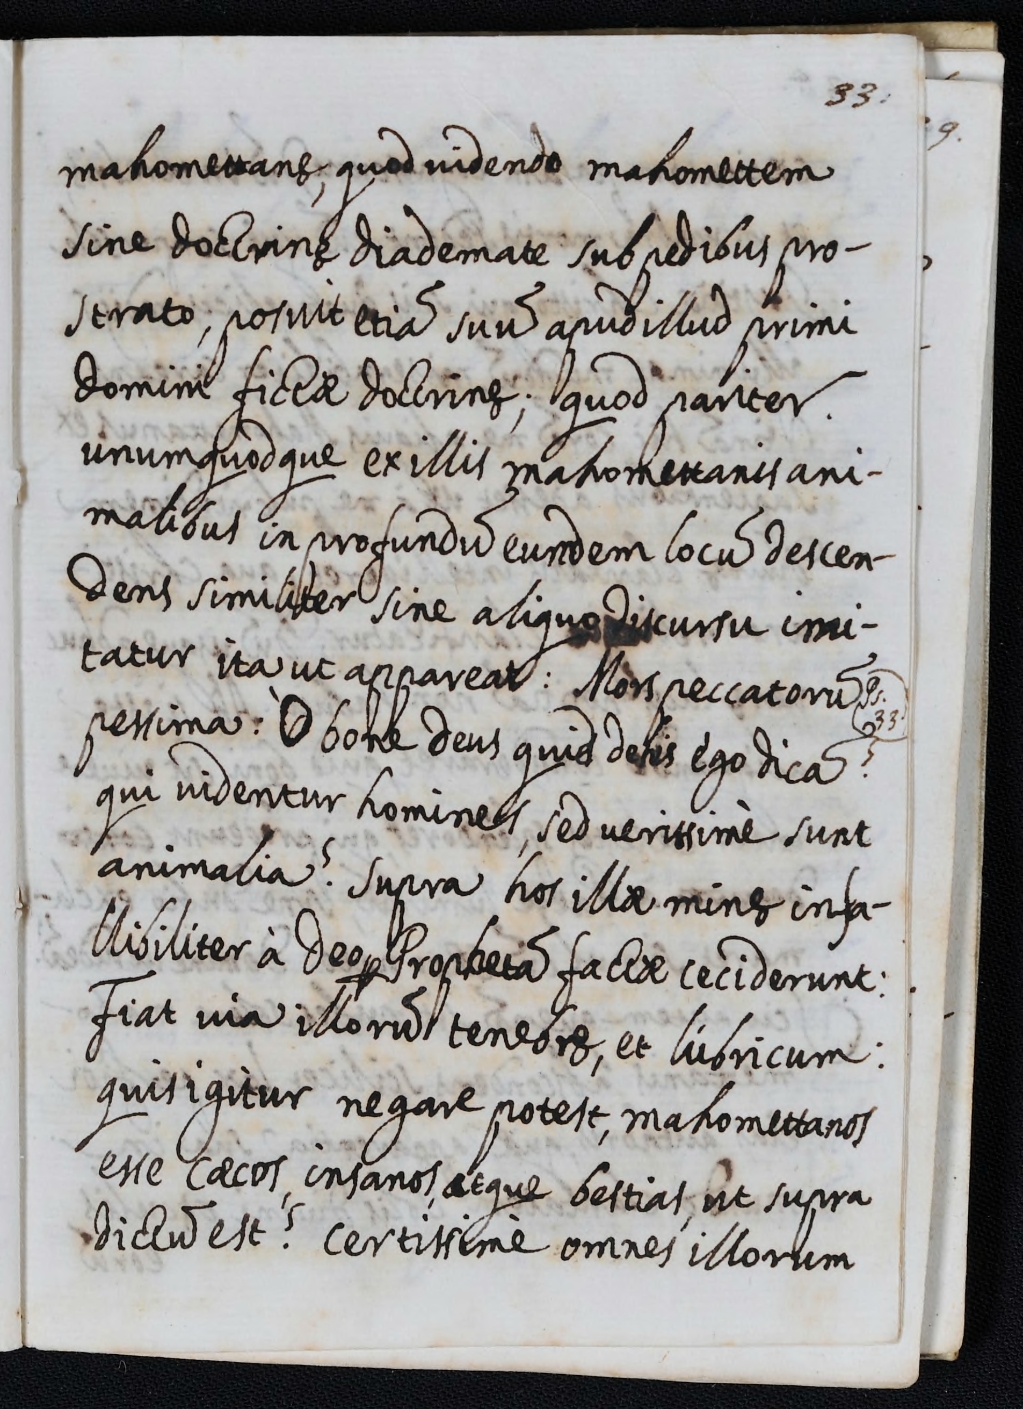 33.
mahomettanę, quod videndo mahomettem
sine doctrinę diademate sub pedibus pro-
strato, posuit etiā suū apud illud primi
domini fictæ doctrinę; quod pariter
unumquodque ex illis mahomettanis ani-
malibus in profundū eundem locū descen-
dens similiter sine aliquo discursu imi-
tatur ita ut appareat: Mors peccatorū Ps. 33.
pessima: O bone deus quid de his ego dicā?
qui videntur homines, sed verissimè sunt
animalia? supra hos illæ minę infa-
llibiliter à Deo ꝑ Prophetā factæ ceciderunt:
Fiat via illorū tenebrę, et lubricum:
quis igitur negare potest, mahomettanos
esse cæcos, insanos, atque bestias, ut supra
dictū est? certissimè omnes illorum
9.